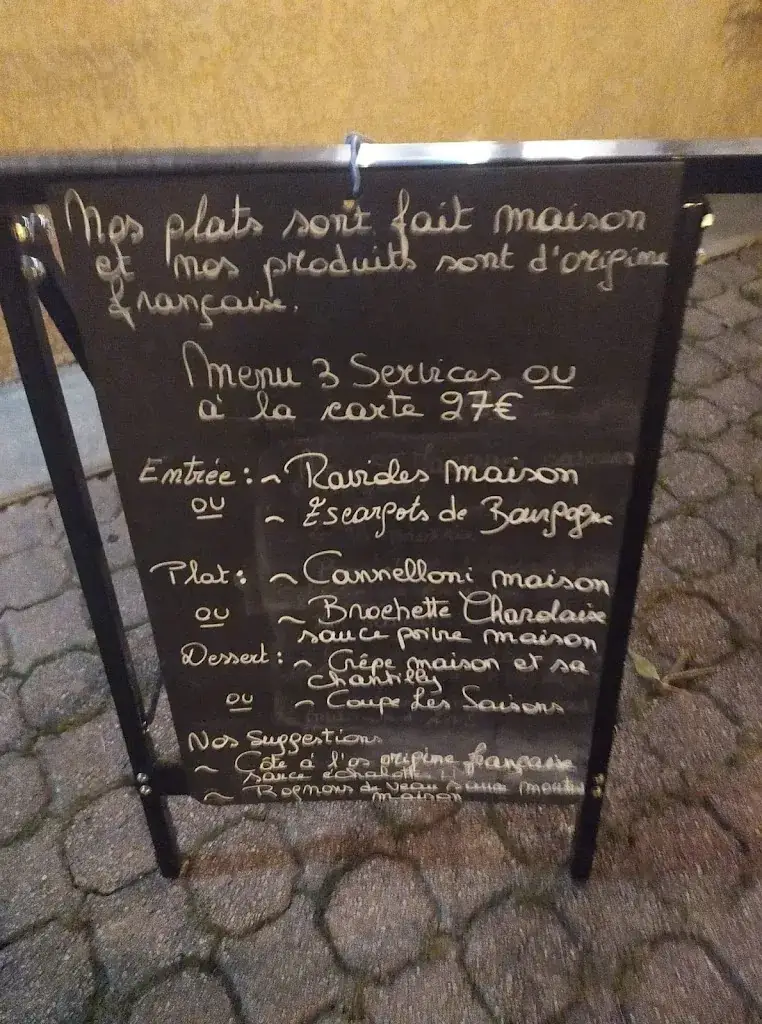 Nos plats sont fait maison
et nos produits sont d'origine
française.
Menu 3 Services ou
à la carte 27€
Entrée : ~ Ravioles maison
ou ~ Escargots de Bourgogne
Plat : ~ Cannelloni maison
ou ~ Brochette Charolaise
sauce poivre maison
Dessert : ~ Crêpe maison et sa
chantilly
ou ~ Coupe Les Saisons
Nos Suggestions
~ Côte à l'os origine française
sauce échalotte
~ Rognons de veau sauce
maison